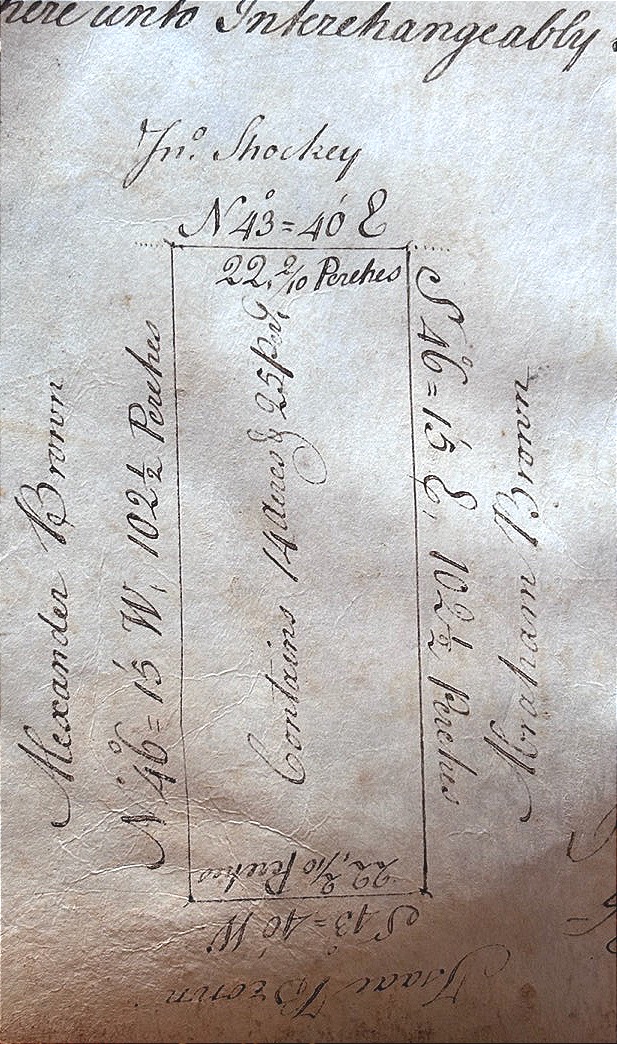 here unto Interchangeably
Jno. Shockey
N 43° = 40' E
22, 2/10 Perches
Alexander Brown
N 46° = 15' W, 102 1/2 Perches
Contains 14 Acres & 25 Per,
S 46° = 15' E, 102 1/2 Perches
Brown
22, 2/10 Perches
S 43° = 40' W
Isaac Brown